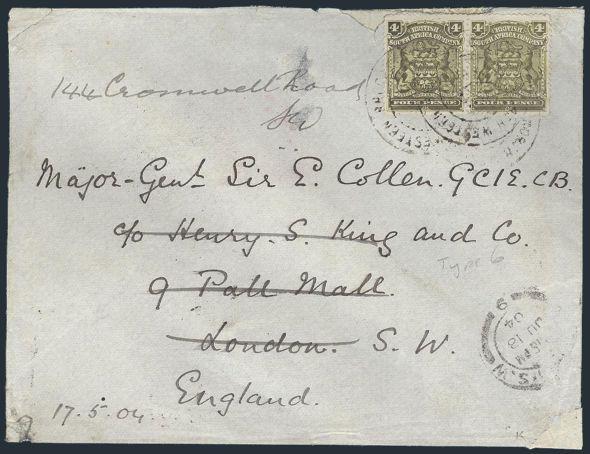 4 4 4 4
BRITISH BRITISH
SOUTH AFRICA COMPANY SOUTH AFRICA COMPANY
FOUR PENCE FOUR PENCE
WESTERN WESTERN
144 Cromwell Road
SW
Major-Genl Sir E. Collen. GCIE. CB.
c/o Henry. S. King and Co.
Type 6
9 Pall Mall.
London. S. W.
England.
17. 5. 04
9
JU 13
04
K